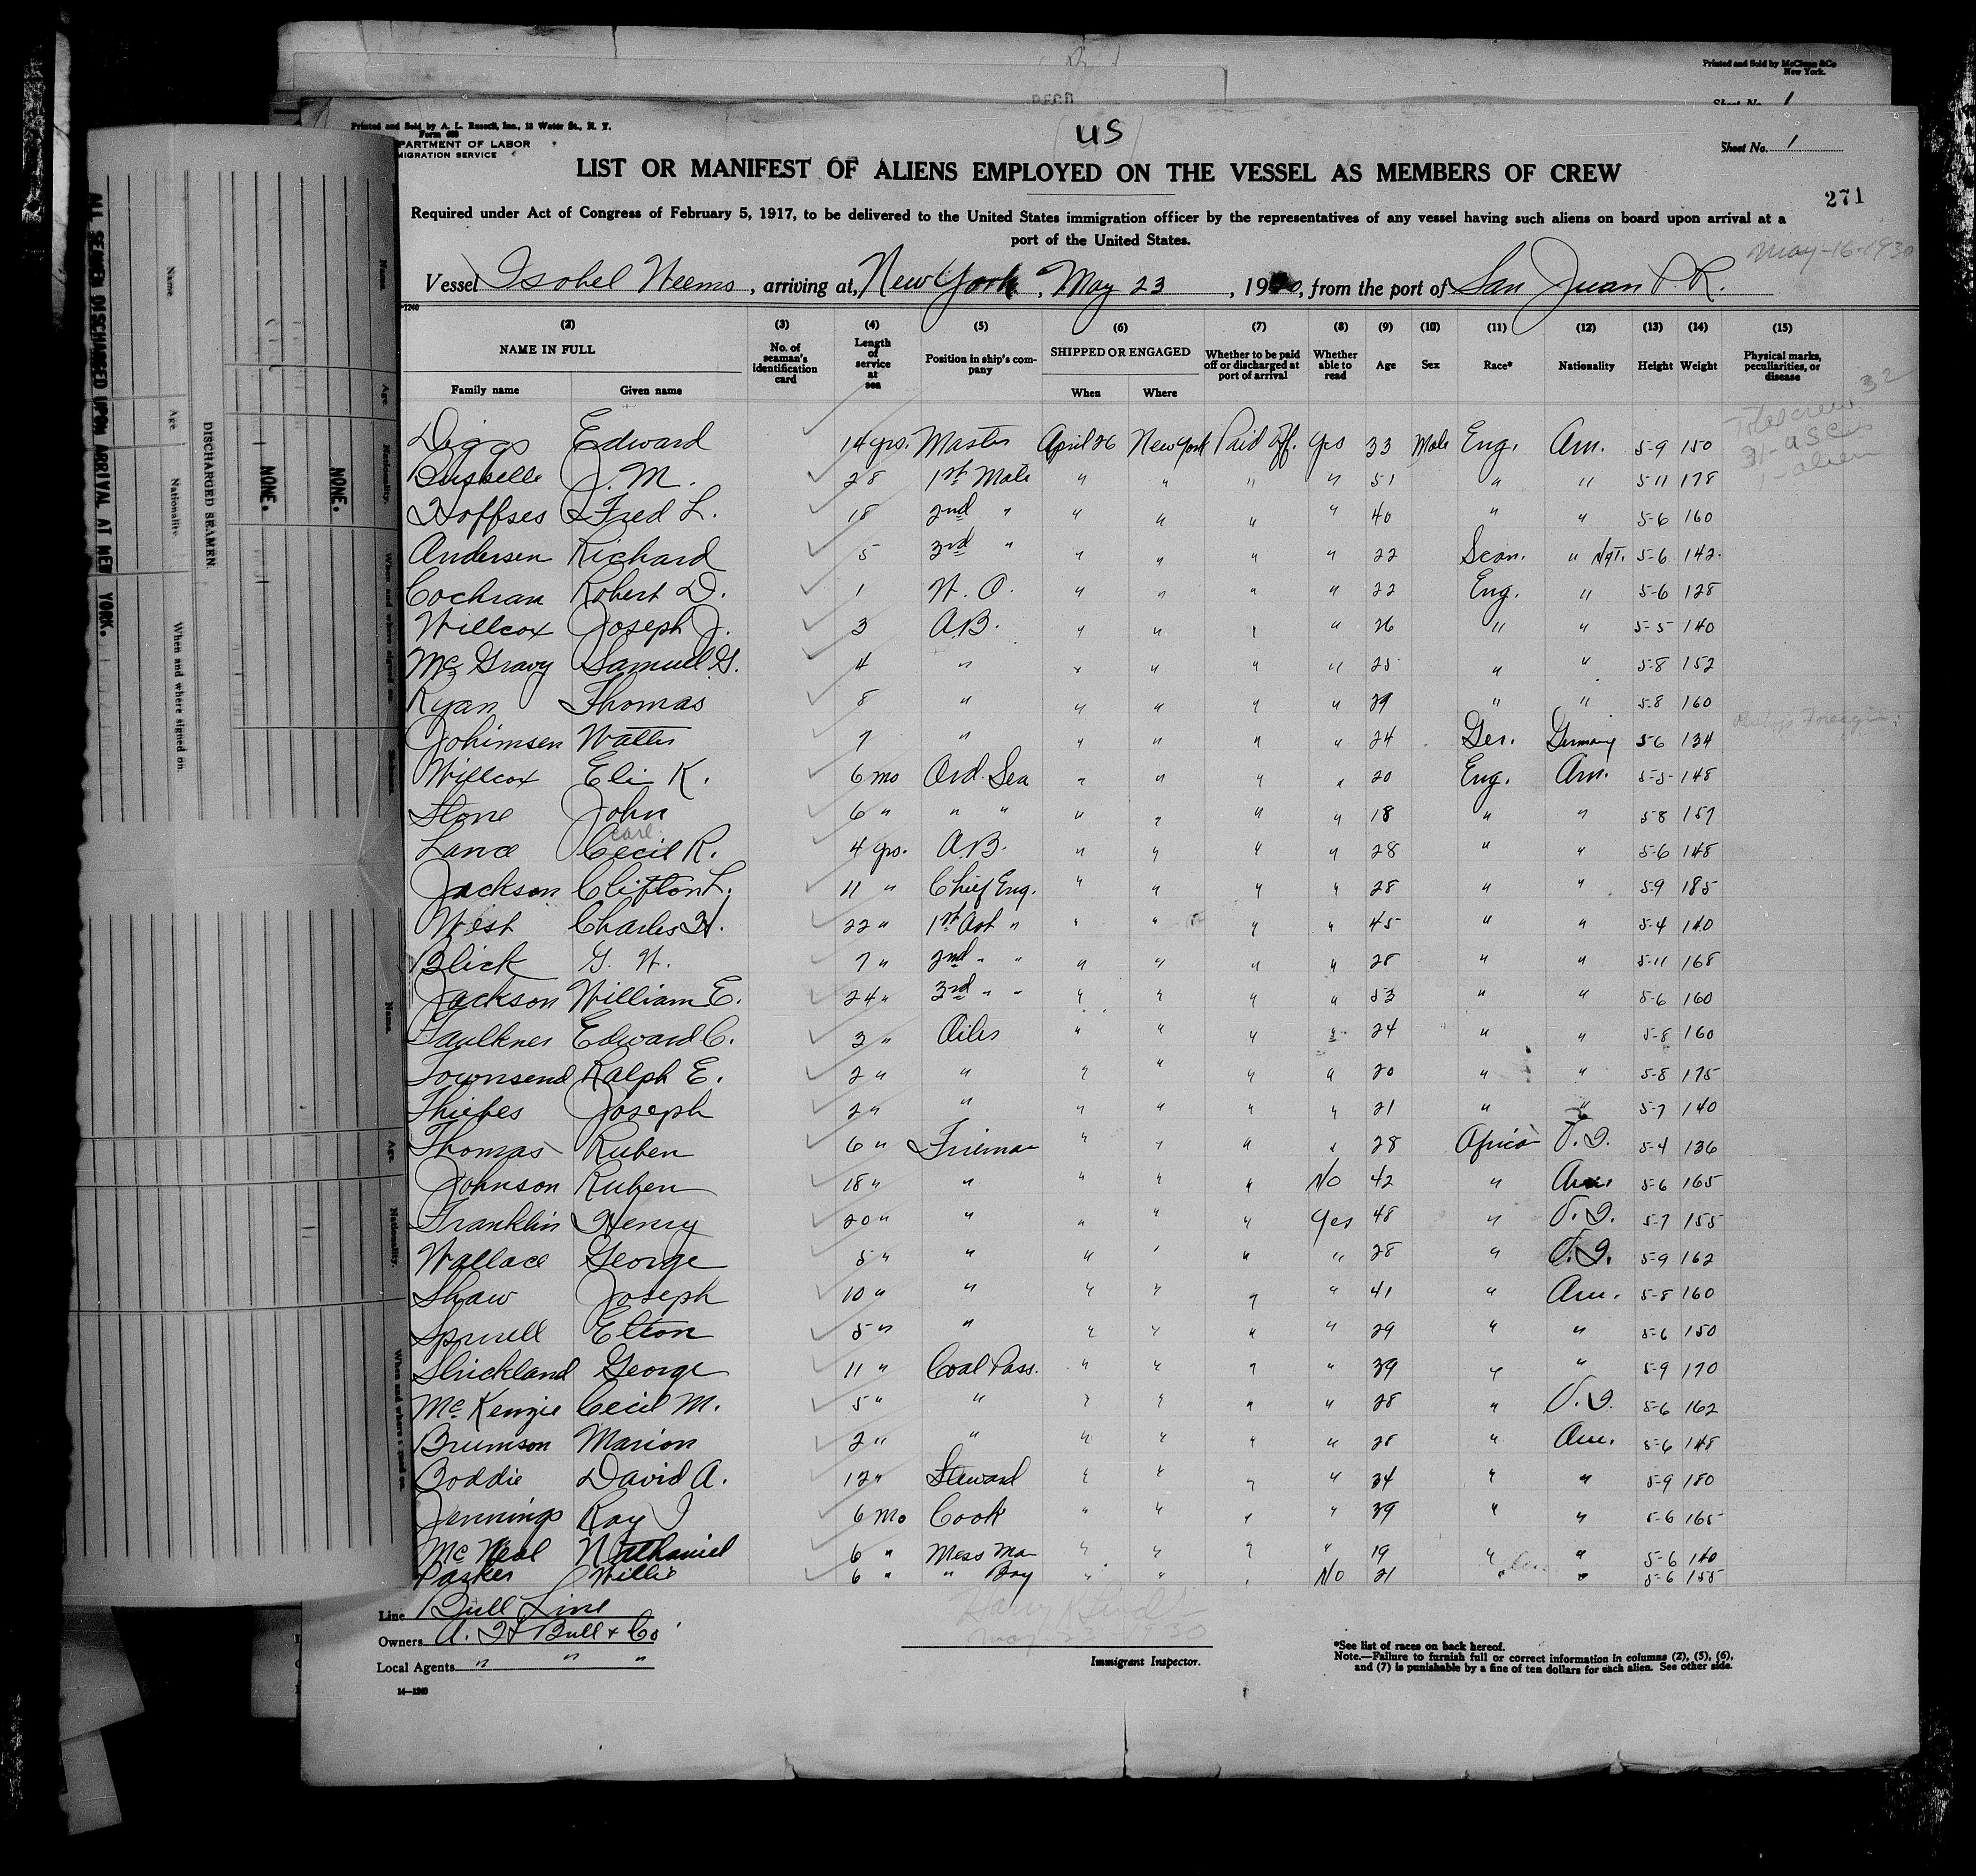 Printed and Sold by McClunn & Co
New York.
Sheet No. 1
Printed and Sold by A. L. Russell, Inc., 13 Water St., N. Y.
PARTMENT OF LABOR
MIGRATION SERVICE
US
Sheet No. 1
LIST OR MANIFEST OF ALIENS EMPLOYED ON THE VESSEL AS MEMBERS OF CREW
271
Required under Act of Congress of February 5, 1917, to be delivered to the United States immigration officer by the representatives of any vessel having such aliens on board upon arrival at a
port of the United States.
May-16-1930
Vessel Isobel Weems, arriving at, New York, May 23, 1930, from the port of San Juan P.R.
(2) (3) (4) (5) (6) (7) (8) (9) (10) (11) (12) (13) (14) (15)
NAME IN FULL No. of seaman's identification card Length of service at sea Position in ship's company SHIPPED OR ENGAGED Whether to be paid off or discharged at port of arrival Whether able to read Age Sex Race* Nationality Height Weight Physical marks, peculiarities, or disease
Family name Given name When Where
32
31-USC
1-alien
Diggs Edward 14 yrs. Master April 26 New York Paid off. Yes 33 Male Eng. Am. 5-9 150
J. M. 28 1st Mate " " " " 51 " " 5-11 178
Hoffses Fred L. 18 2nd " " " " " 40 " " 5-6 160
Andersen Richard 5 3rd " " " " " 22 Scan. " Nat. 5-6 142
Cochran Robert D. 1 W. O. " " " " 22 Eng. " 5-6 128
Willcox Joseph J. 3 A.B. " " " " 26 " " 5-5 140
Mc Gravy Samuel G. 4 " " " " " 25 " " 5-8 152
Ryan Thomas 8 " " " " " 29 " " 5-8 160
Johimsen Walter 7 " " " " " 24 Ger. Germany 5-6 134
Willcox Eli K. 6 mo Ord. Sea " " " " 20 Eng. Am. 5-5 148
Stone John 6 " " " " " " " 18 " " 5-8 157
Carl
Lance Cecil R. 4 yrs. A.B. " " " " 28 " " 5-6 148
Jackson Clifton L. 11 " Chief Eng. " " " " 28 " " 5-9 185
West Charles H. 22 " 1st Ast " " " " " 45 " " 5-4 140
Blick G. W. 7 " 2nd " " " " " " 28 " " 5-11 168
Jackson William E. 24 " 3rd " " " " " " 53 " " 5-6 160
Faulkner Edward C. 3 " Oiler " " " " 24 " " 5-8 160
Townsend Ralph E. 2 " " " " " " 20 " " 5-8 175
Thiebes Joseph 2 " " " " " " 21 " " 5-7 140
Thomas Ruben 6 " Frieman " " " " 28 Africa V.I. 5-4 136
Johnson Ruben 18 " " " " " No 42 " Am. 5-6 165
Franklin Henry 20 " " " " " Yes 48 " V.I. 5-7 155
Wallace George 5 " " " " " " 28 " V.I. 5-9 162
Shaw Joseph 10 " " " " " " 41 " Am. 5-8 160
Spruell Elton 5 " " " " " " 29 " " 5-6 150
Strickland George 11 " Coal Pass. " " " " 39 " " 5-9 170
Mc Kenzie Cecil M. 5 " " " " " " 28 " V.I. 5-6 162
Brumson Marion 2 " " " " " " 28 " Am. 5-6 148
Boddie David A. 12 " Steward " " " " 34 " " 5-9 180
Jennings Ray 6 mo Cook " " " " 39 " " 5-6 165
Mc Neal Nathaniel 6 " Mess Man " " " " 19 " " 5-6 140
Parker Willie 6 " " Boy " " " No 21 " " 5-6 155
Line Bull Line
Owners A. H. Bull & Co.
Local Agents " " "
May-23-1930
Immigrant Inspector.
*See list of races on back hereof.
Note.—Failure to furnish full or correct information in columns (2), (5), (6),
and (7) is punishable by a fine of ten dollars for each alien. See other side.
14—1240
ALL SEAMEN DISCHARGED UPON ARRIVAL AT NEW YORK.
DISCHARGED SEAMEN.
Name Age Nationality. When and where signed on.
NONE.
NONE.
Name. Age. Nationality. When and where signed on.